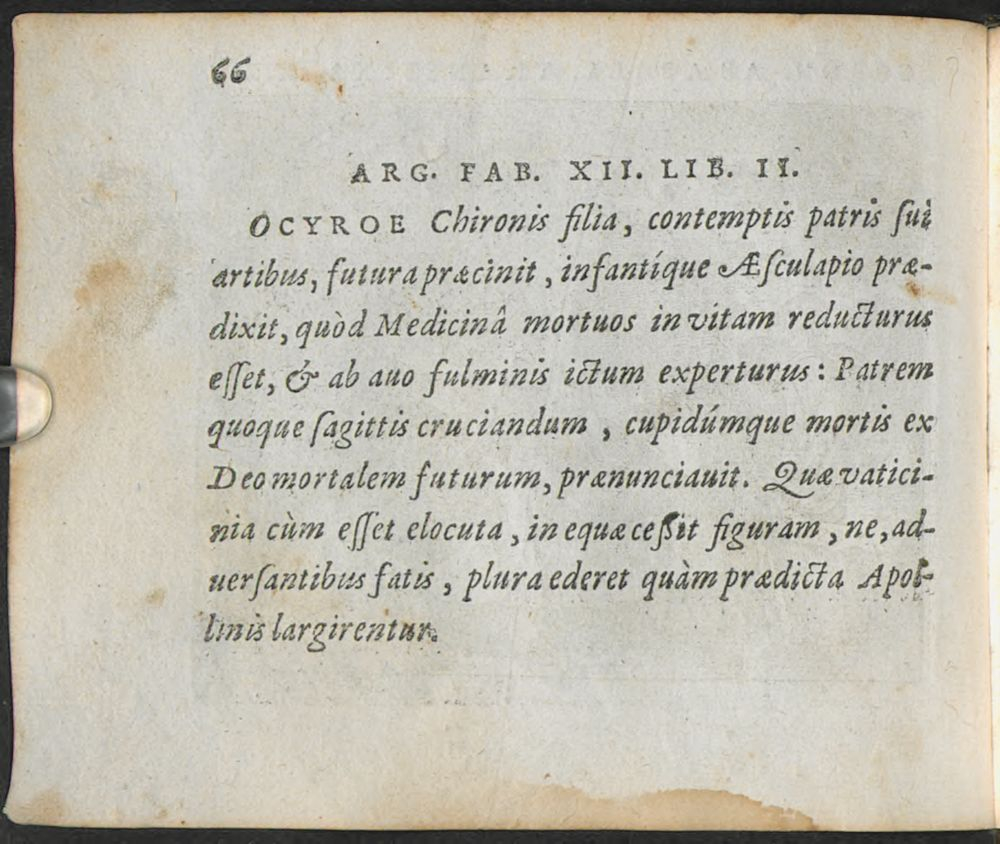 66
ARG. FAB. XII. LIB. II.
OCYROE Chironis filia, contemptis patris ſui
artibus, futura præcinit, infantíque Æſculapio præ-
dixit, quòd Medicinâ mortuos in vitam reducturus
eſſet, & ab auo fulminis ictum experturus: Patrem
quoque ſagittis cruciandum, cupidúmque mortis ex
Deo mortalem futurum, prænunciauit. Quæ vatici-
nia cùm eſſet elocuta, in equæ ceßit figuram, ne, ad-
uerſantibus fatis, plura ederet quàm prædicta Apol-
linis largirentur.